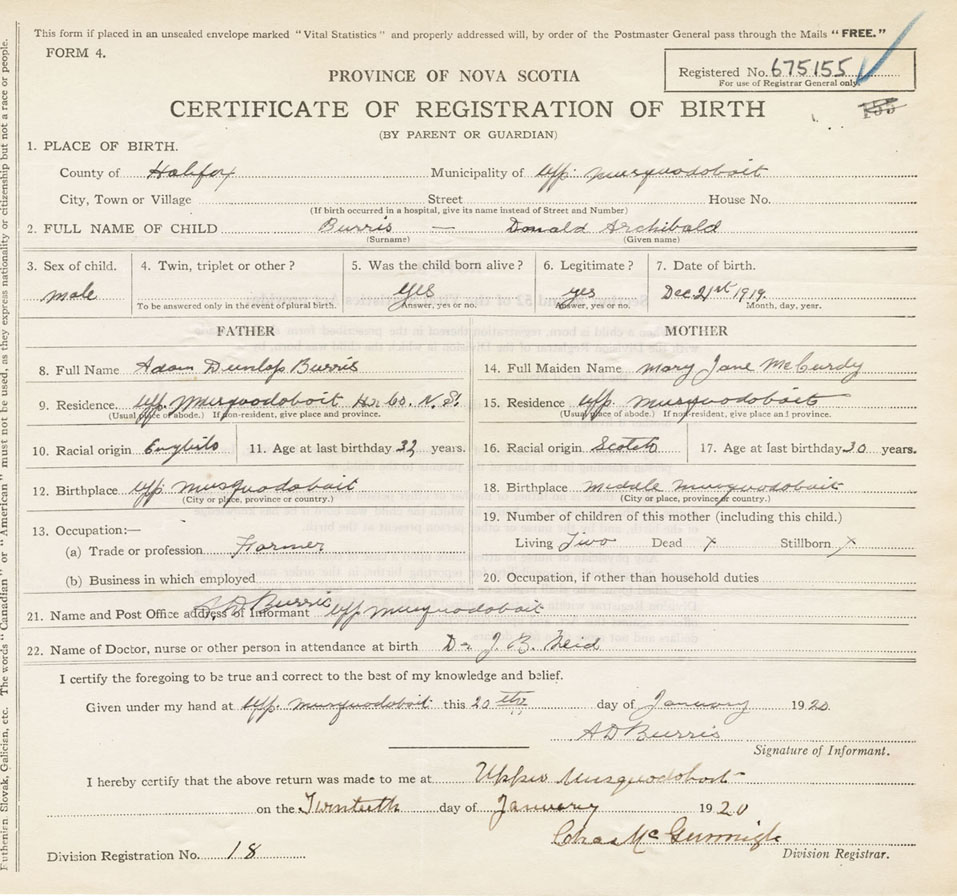 This form if placed in an unsealed envelope marked "Vital Statistics" and properly addressed will, by order of the Postmaster General pass through the Mails "FREE."
FORM 4.
Registered No. 675155
For use of Registrar General only.
PROVINCE OF NOVA SCOTIA
CERTIFICATE OF REGISTRATION OF BIRTH
(BY PARENT OR GUARDIAN)
1. PLACE OF BIRTH.
County of Halifax Municipality of Upp. Musquodoboit
City, Town or Village Street House No.
(If birth occurred in a hospital, give its name instead of Street and Number)
2. FULL NAME OF CHILD Burris — Donald Archibald
(Surname) (Given name)
3. Sex of child. 4. Twin, triplet or other? 5. Was the child born alive? 6. Legitimate? 7. Date of birth.
male yes yes Dec. 21st 1919.
To be answered only in the event of plural birth. Answer, yes or no. Answer, yes or no. Month, day, year.
FATHER MOTHER
8. Full Name Adam Dunlop Burris 14. Full Maiden Name Mary Jane McCurdy
9. Residence Upp. Musquodoboit Hx Co. N.S. 15. Residence Upp. Musquodoboit
(Usual place of abode.) If non-resident, give place and province. (Usual place of abode.) If non-resident, give place and province.
10. Racial origin English 11. Age at last birthday 32 years. 16. Racial origin Scotch 17. Age at last birthday 30 years.
12. Birthplace Upp Musquodoboit 18. Birthplace Middle Musquodoboit
(City or place, province or country.) (City or place, province or country.)
13. Occupation:— 19. Number of children of this mother (including this child.)
(a) Trade or profession Farmer Living Two Dead x Stillborn x
(b) Business in which employed 20. Occupation, if other than household duties
21. Name and Post Office address of Informant A D Burris Upp Musquodoboit
22. Name of Doctor, nurse or other person in attendance at birth Dr J. B. Reid
I certify the foregoing to be true and correct to the best of my knowledge and belief.
Given under my hand at Upp. Musquodoboit this 20th day of January 1920.
A D Burris
Signature of Informant.
I hereby certify that the above return was made to me at Upper Musquodoboit
on the Twentieth day of January 1920
Chas Mc
Division Registration No. 18 Division Registrar.
Ruthenian, Slovak, Galician, etc. The words "Canadian" or "American" must not be used, as they express nationality or citizenship but not a race or people.